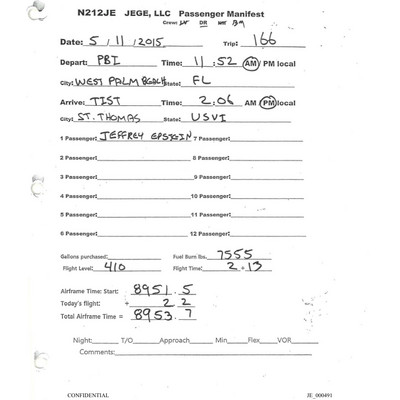 N212JE JEGE, LLC Passenger Manifest
Crew:
Date: 5/11/2015 Trip: 166
Depart: PBI Time: 11:52 AM PM local
City: WEST PALM BEACH State: FL
Arrive: TIST Time: 2:06 AM PM local
City: ST. THOMAS State: USVI
1 Passenger: JEFFREY EPSTEIN 7 Passenger:
2 Passenger: 8 Passenger:
3 Passenger: 9 Passenger:
4 Passenger: 10 Passenger:
5 Passenger: 11 Passenger:
6 Passenger: 12 Passenger:
Gallons purchased: Fuel Burn lbs. 7555
Flight Level: 410 Flight Time: 2+13
Airframe Time: Start: 8951.5
Today's flight: + 2.2
Total Airframe Time = 8953.7
Night: T/O Approach Min Flex VOR
Comments:
CONFIDENTIAL JE_000491